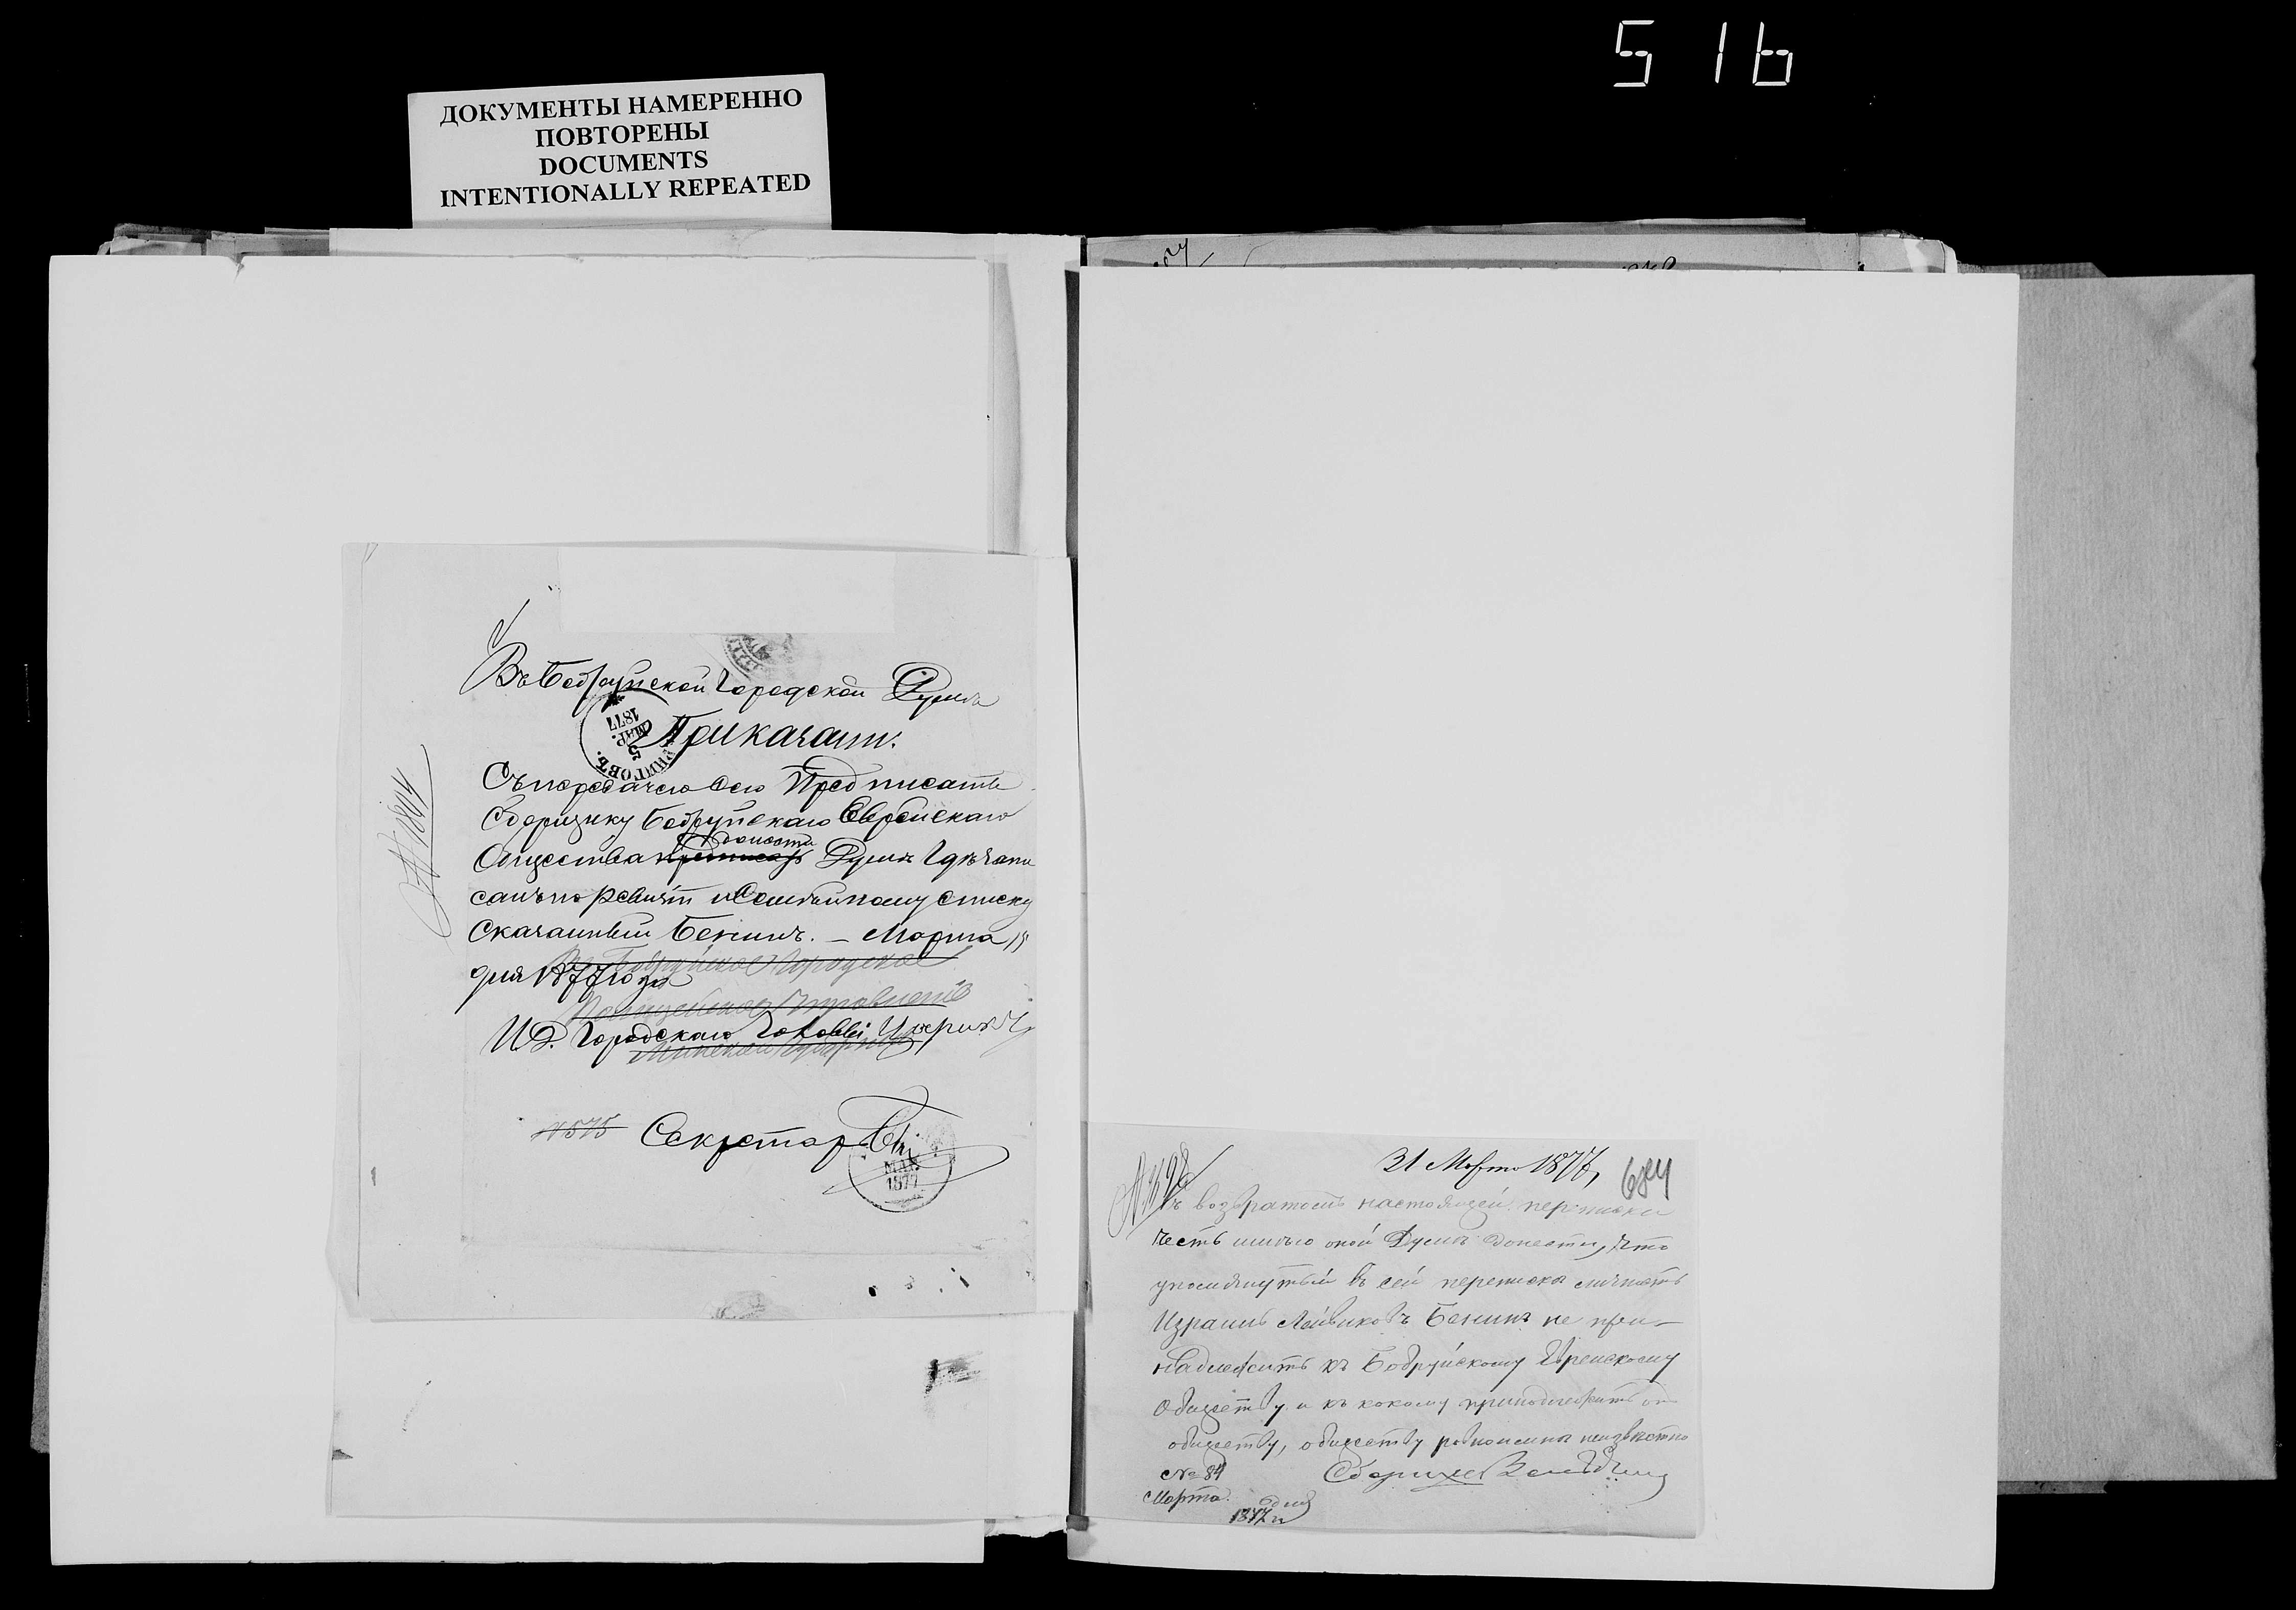 516
ДОКУМЕНТЫ НАМЕРЕННО
ПОВТОРЕНЫ
DOCUMENTS
INTENTIONALLY REPEATED
Въ Бобруйской Городской Думѣ
Приказали:
Съ передачею сего Предписать
Сборщику Бобруйскаго Еврейскаго
донести
Общества Думѣ гдѣ запи
санъ по Ревизіи и Семейному списку
Сказанный Бенинъ. – Марта
дня 1877 года
Бобруйское Городское
Полицейское Управленіе
И.Д. Городскаго Головы
Минской губерніи
№ 575 Секретарь
ЧЕРНИГОВЪ.
5
МАР.
1877
МАР.
1877
31 Марта 1877,
684
Съ возвратомъ настоящей переписки
честь имѣю оной Думѣ донести, что
упомянутый въ сей переписке личность
Израиль Лейвиковъ Бенинъ не при-
надлежитъ къ Бобруйскому Еврейскому
Обществу и къ какому принадлежитъ онъ
обществу, обществу неизвѣстно
№ 84
Марта дня
1877 г.